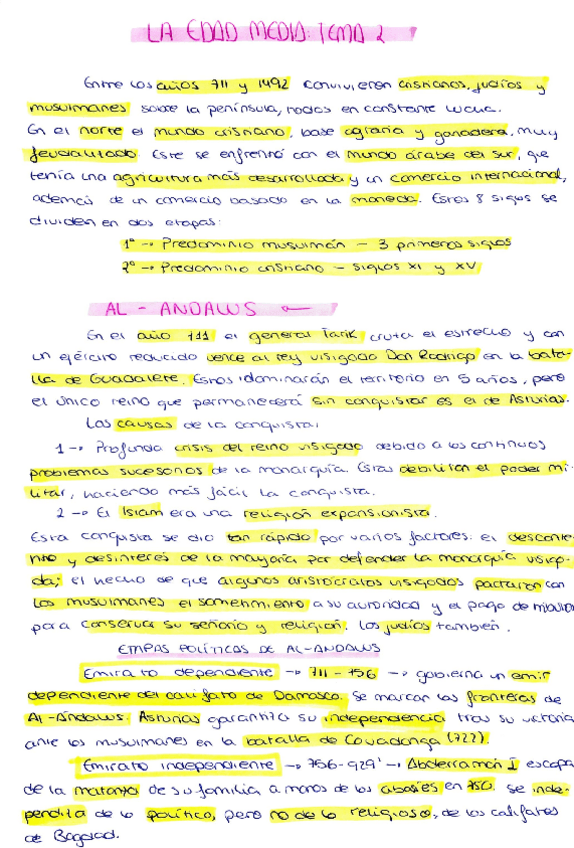 LA EDAD MEDIA: TEMA 2
Entre los años 711 y 1492 convivieron cristianos, judíos y
musulmanes sobre la península, todos en constante lucha.
En el norte el mundo cristiano, base agraria y ganadera, muy
feudalizado. Este se enfrentó con el mundo árabe del sur, que
tenía una agricultura más desarrollada y un comercio internacional,
además de un comercio basado en la moneda. Estos 8 siglos se
dividen en dos etapas:
1º → Predominio musulmán - 3 primeros siglos
2º → Predominio cristiano - siglos XI y XV
AL - ANDALUS ←
En el año 711 el general Tarik cruza el estrecho y con
un ejército reducido vence al rey visigodo Don Rodrigo en la bata-
lla de Guadalete. Estos dominarán el territorio en 5 años, pero
el único reino que permanecerá sin conquistar es el de Asturias.
Las causas de la conquista:
1 → Profunda crisis del reino visigodo debido a los continuos
problemas sucesorios de la monarquía. Estas debilitan el poder mi-
litar, haciendo más fácil la conquista.
2 → El Islam era una religión expansionista.
Esta conquista se dio tan rápido por varios factores: el desconte-
nto y desinterés de la mayoría por defender la monarquía visigo-
da; el hecho de que algunos aristócratas visigodos pactaron con
los musulmanes el sometimiento a su autoridad y el pago de tributos
para conservar su señorío y religión. Los judíos también.
ETAPAS POLÍTICAS DE AL-ANDALUS
Emirato dependiente → 711 - 756 → gobierna un emir
dependiente del califato de Damasco. Se marcan las fronteras de
Al-Ándalus. Asturias garantiza su independencia tras su victoria
ante los musulmanes en la batalla de Covadonga (722).
Emirato independiente → 756-929 → Abderramán I escapa
de la matanza de su familia a manos de los abasíes en 750. Se inde-
pendiza de lo político, pero no de lo religioso, de los califatos
de Bagdad.